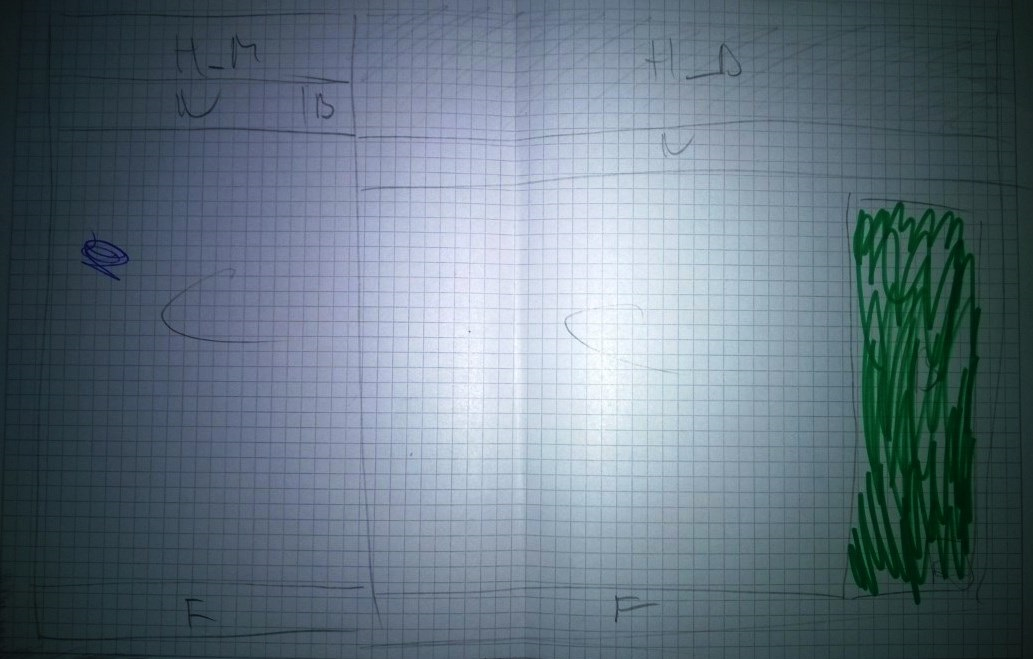 H_M
N B
C
F
H_D
N
C
F